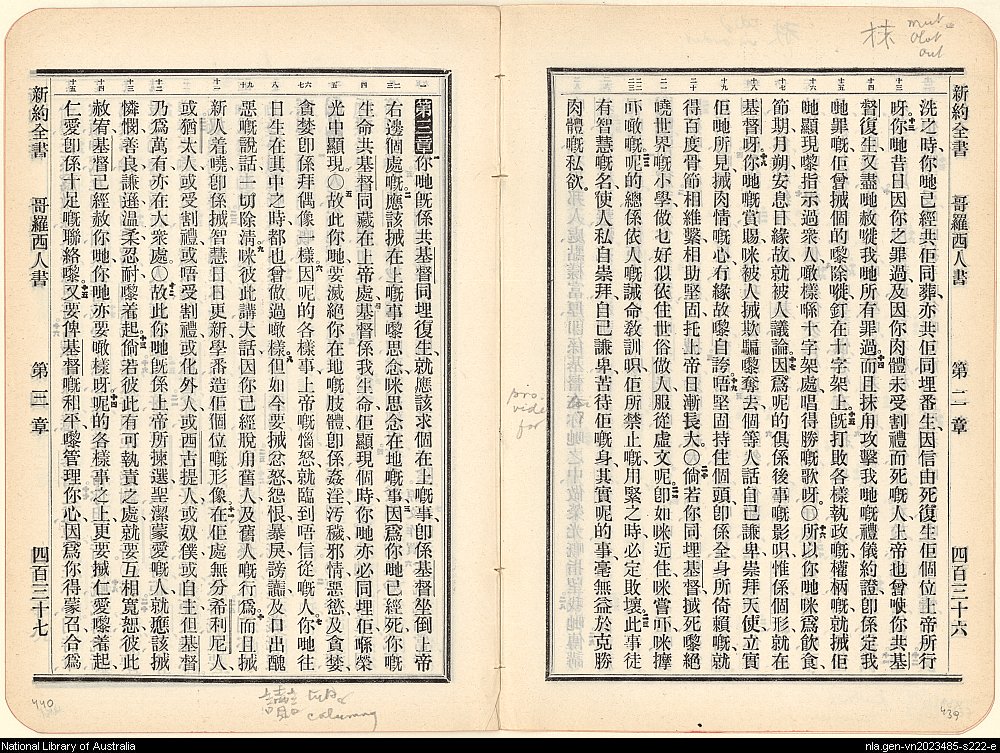 新約全書 哥羅西人書 第二章 四百三十六
洗之時、你哋已經共佢同葬、亦共佢同埋番生、因信由死復生佢個位上帝所行
呀、你哋昔日因你之罪過、及因你肉體未受割禮而死嘅人、上帝也曾使你共基
督復生、又盡哋赦嘥我哋所有罪過、而且抹甪攻擊我哋嘅禮儀約證、卽係定我
哋罪嘅、佢曾搣個的嚟除嘥、釘在十字架上、旣打敗各樣執政嘅權柄嘅、就搣佢
哋顯現嚟指示過衆人、噉樣喺十字架處、唱得勝嘅歌呀。〇所以你哋咪爲飲食、
節期、月朔、安息日緣故、就被人議論、因爲呢的俱係後事嘅影呮、惟係個形就在
基督呀、你哋嘅賞賜咪被人搣欺騙嚟奪去、個等人話自己謙卑崇拜天使、立實
佢哋所見、搣肉情嘅心、冇緣故嚟自誇、唔堅固持住個頭、卽係全身所倚賴嘅、就
得百度骨節相維繫相助堅固、托上帝日漸長大。〇倘若你同埋基督搣死嚟絕
曉世界嘅小學、做乜好似依住世俗做人、服從虛文呢、卽如咪近住、咪嘗吓、咪擇
吓噉嘅呢的總係依人嘅誡命敎訓呮、佢所禁止嘅、用緊之時必定敗壞、此事徒
有智慧嘅名、使人私自崇拜、自己謙卑、苦待佢嘅身、其實呢的事毫無益於克勝
肉體嘅私欲。
新約全書 哥羅西人書 第三章 四百三十七
第三章 你哋旣係共基督同埋復生、就應該求個在上嘅事、卽係基督坐倒上帝
右邊個處嘅、應該搣在上嘅事嚟思念、咪思念在地嘅事、因爲你哋已經死、你嘅
生命共基督同藏在上帝處、基督係我生命、佢顯現個時、你哋亦必同埋佢喺榮
光中顯現。〇故此你哋要滅絕你在地嘅肢體、卽係姦淫、汚穢、邪情、惡慾、及貪婪、
貪婪卽係拜偶像一樣、因呢的各樣事、上帝嘅惱怒就臨到唔信從嘅人、你哋往
日生在其中之時、都也曾做過噉樣、但如今要搣忿怒、怨恨、暴戾、謗讟、及口出醜
惡嘅說話、一切除淸、咪彼此講大話、因你已經脫甪舊人、及舊人嘅行爲、而且搣
新人着曉、卽係搣智慧日日更新、學番造佢個位嘅形像、在佢處無分希利尼人、
或猶太人、或受割禮、或唔受割禮、或化外人、或西古提人、或奴僕、或自主、但基督
乃爲萬有、亦在大衆處。〇故此你哋旣係上帝所揀選聖潔蒙愛嘅人、就應該搣
憐憫、善良、謙遜、溫柔、忍耐、嚟着起、倘若彼此有可執責之處、就要互相寬恕、彼此
赦宥、基督已經赦你哋、你哋亦要噉樣呀、呢的各樣事之上、更要搣仁愛嚟着起、
仁愛卽係十足嘅聯絡嚟、又要俾基督嘅和平嚟管理你心、因爲你得蒙召合爲
pro-
vide
for
mut-
out
讟
two
columns
440
439
National Library of Australia
nla.gen-vn2023485-s222-e